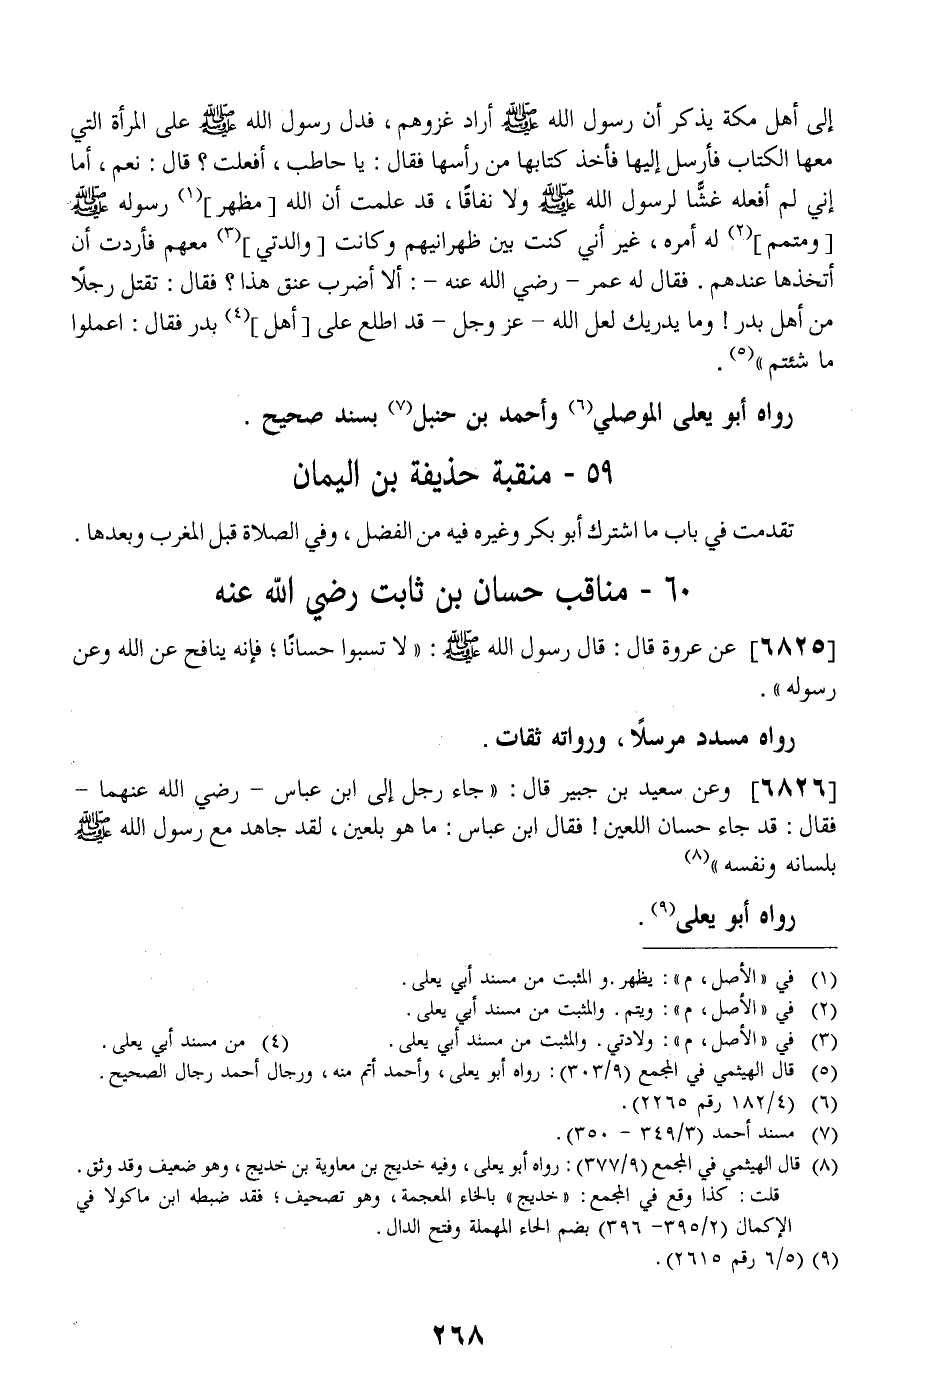 إلى أهل مكة يذكر أن رسول الله ﷺ أراد غزوهم ، فدل رسول الله ﷺ على المرأة التي
معها الكتاب فأرسل إليها فأخذ كتابها من رأسها فقال : يا حاطب ، أفعلت ؟ قال : نعم ، أما
إني لم أفعله غشًّا لرسول الله ﷺ ولا نفاقًا ، قد علمت أن الله [ مظهر ](١) رسوله ﷺ
[ ومتمم ](٢) له أمره ، غير أني كنت بين ظهرانيهم وكانت [ والدتي ](٣) معهم فأردت أن
أتخذها عندهم . فقال له عمر – رضي الله عنه – : ألا أضرب عنق هذا ؟ فقال : تقتل رجلًا
من أهل بدر ! وما يدريك لعل الله – عز وجل – قد اطلع على [ أهل ](٤) بدر فقال : اعملوا
ما شئتم »(٥) .
رواه أبو يعلى الموصلي(٦) وأحمد بن حنبل(٧) بسند صحيح .
٥٩ - منقبة حذيفة بن اليمان
تقدمت في باب ما اشترك أبو بكر وغيره فيه من الفضل ، وفي الصلاة قبل المغرب وبعدها .
٦٠ - مناقب حسان بن ثابت رضي الله عنه
[٦٨٢٥] عن عروة قال : قال رسول الله ﷺ : « لا تسبوا حسانًا ؛ فإنه ينافح عن الله وعن
رسوله » .
رواه مسدد مرسلًا ، ورواته ثقات .
[٦٨٢٦] وعن سعيد بن جبير قال : « جاء رجل إلى ابن عباس – رضي الله عنهما –
فقال : قد جاء حسان اللعين ! فقال ابن عباس : ما هو بلعين ، لقد جاهد مع رسول الله ﷺ
بلسانه ونفسه »(٨)
رواه أبو يعلى(٩) .
(١) في « الأصل ، م » : يظهر .و المثبت من مسند أبي يعلى .
(٢) في « الأصل ، م » : ويتم . والمثبت من مسند أبي يعلى .
(٣) في « الأصل ، م » : ولادتي . والمثبت من مسند أبي يعلى . (٤) من مسند أبي يعلى .
(٥) قال الهيثمي في المجمع (٣٠٣/٩) : رواه أبو يعلى ، وأحمد أتم منه ، ورجال أحمد رجال الصحيح .
(٦) (١٨٢/٤ رقم ٢٢٦٥) .
(٧) مسند أحمد (٣٤٩/٣ – ٣٥٠) .
(٨) قال الهيثمي في المجمع (٣٧٧/٩) : رواه أبو يعلى ، وفيه خديج بن معاوية بن خديج ، وهو ضعيف وقد وثق .
قلت : كذا وقع في المجمع : « خديج » بالخاء المعجمة ، وهو تصحيف ؛ فقد ضبطه ابن ماكولا في
الإكمال (٣٩٥/٢– ٣٩٦) بضم الحاء المهملة وفتح الدال .
(٩) (٦/٥ رقم ٢٦١٥) .
٢٦٨